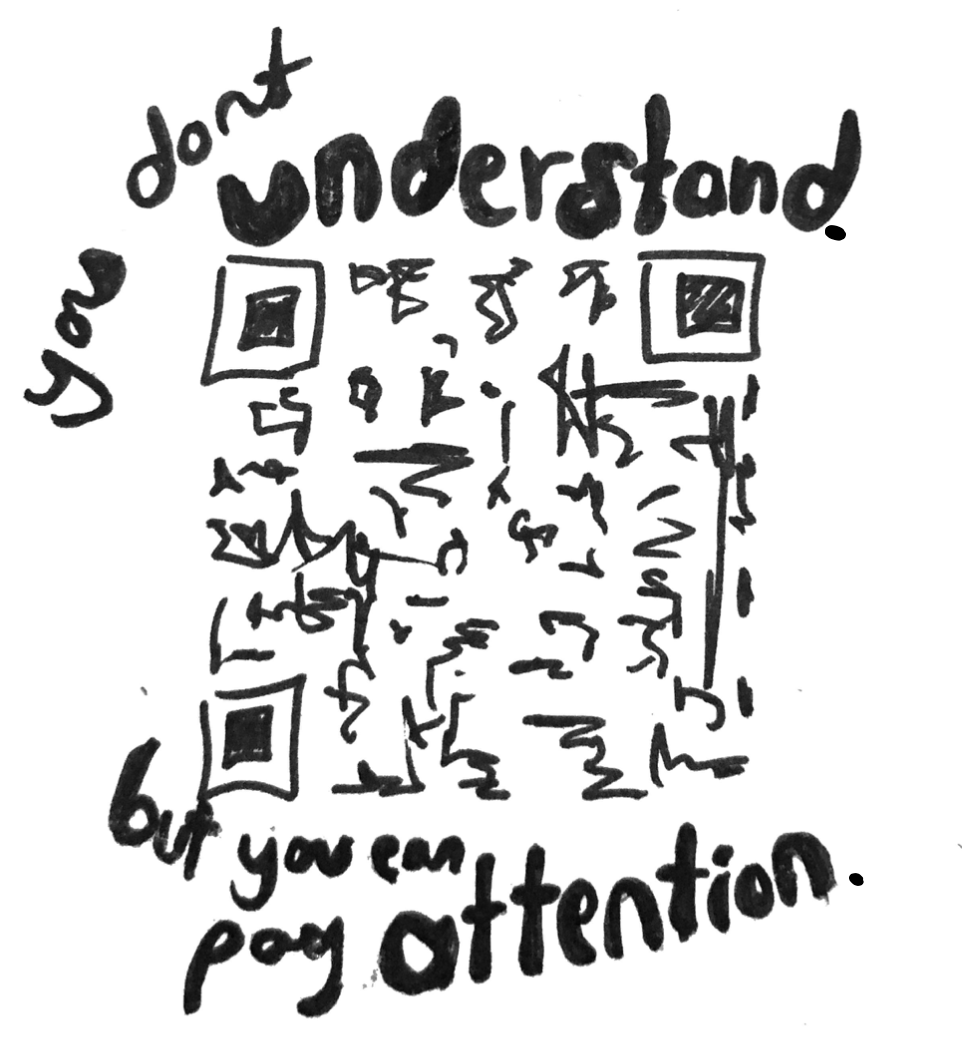 you dont understand.
but you can
pay attention.